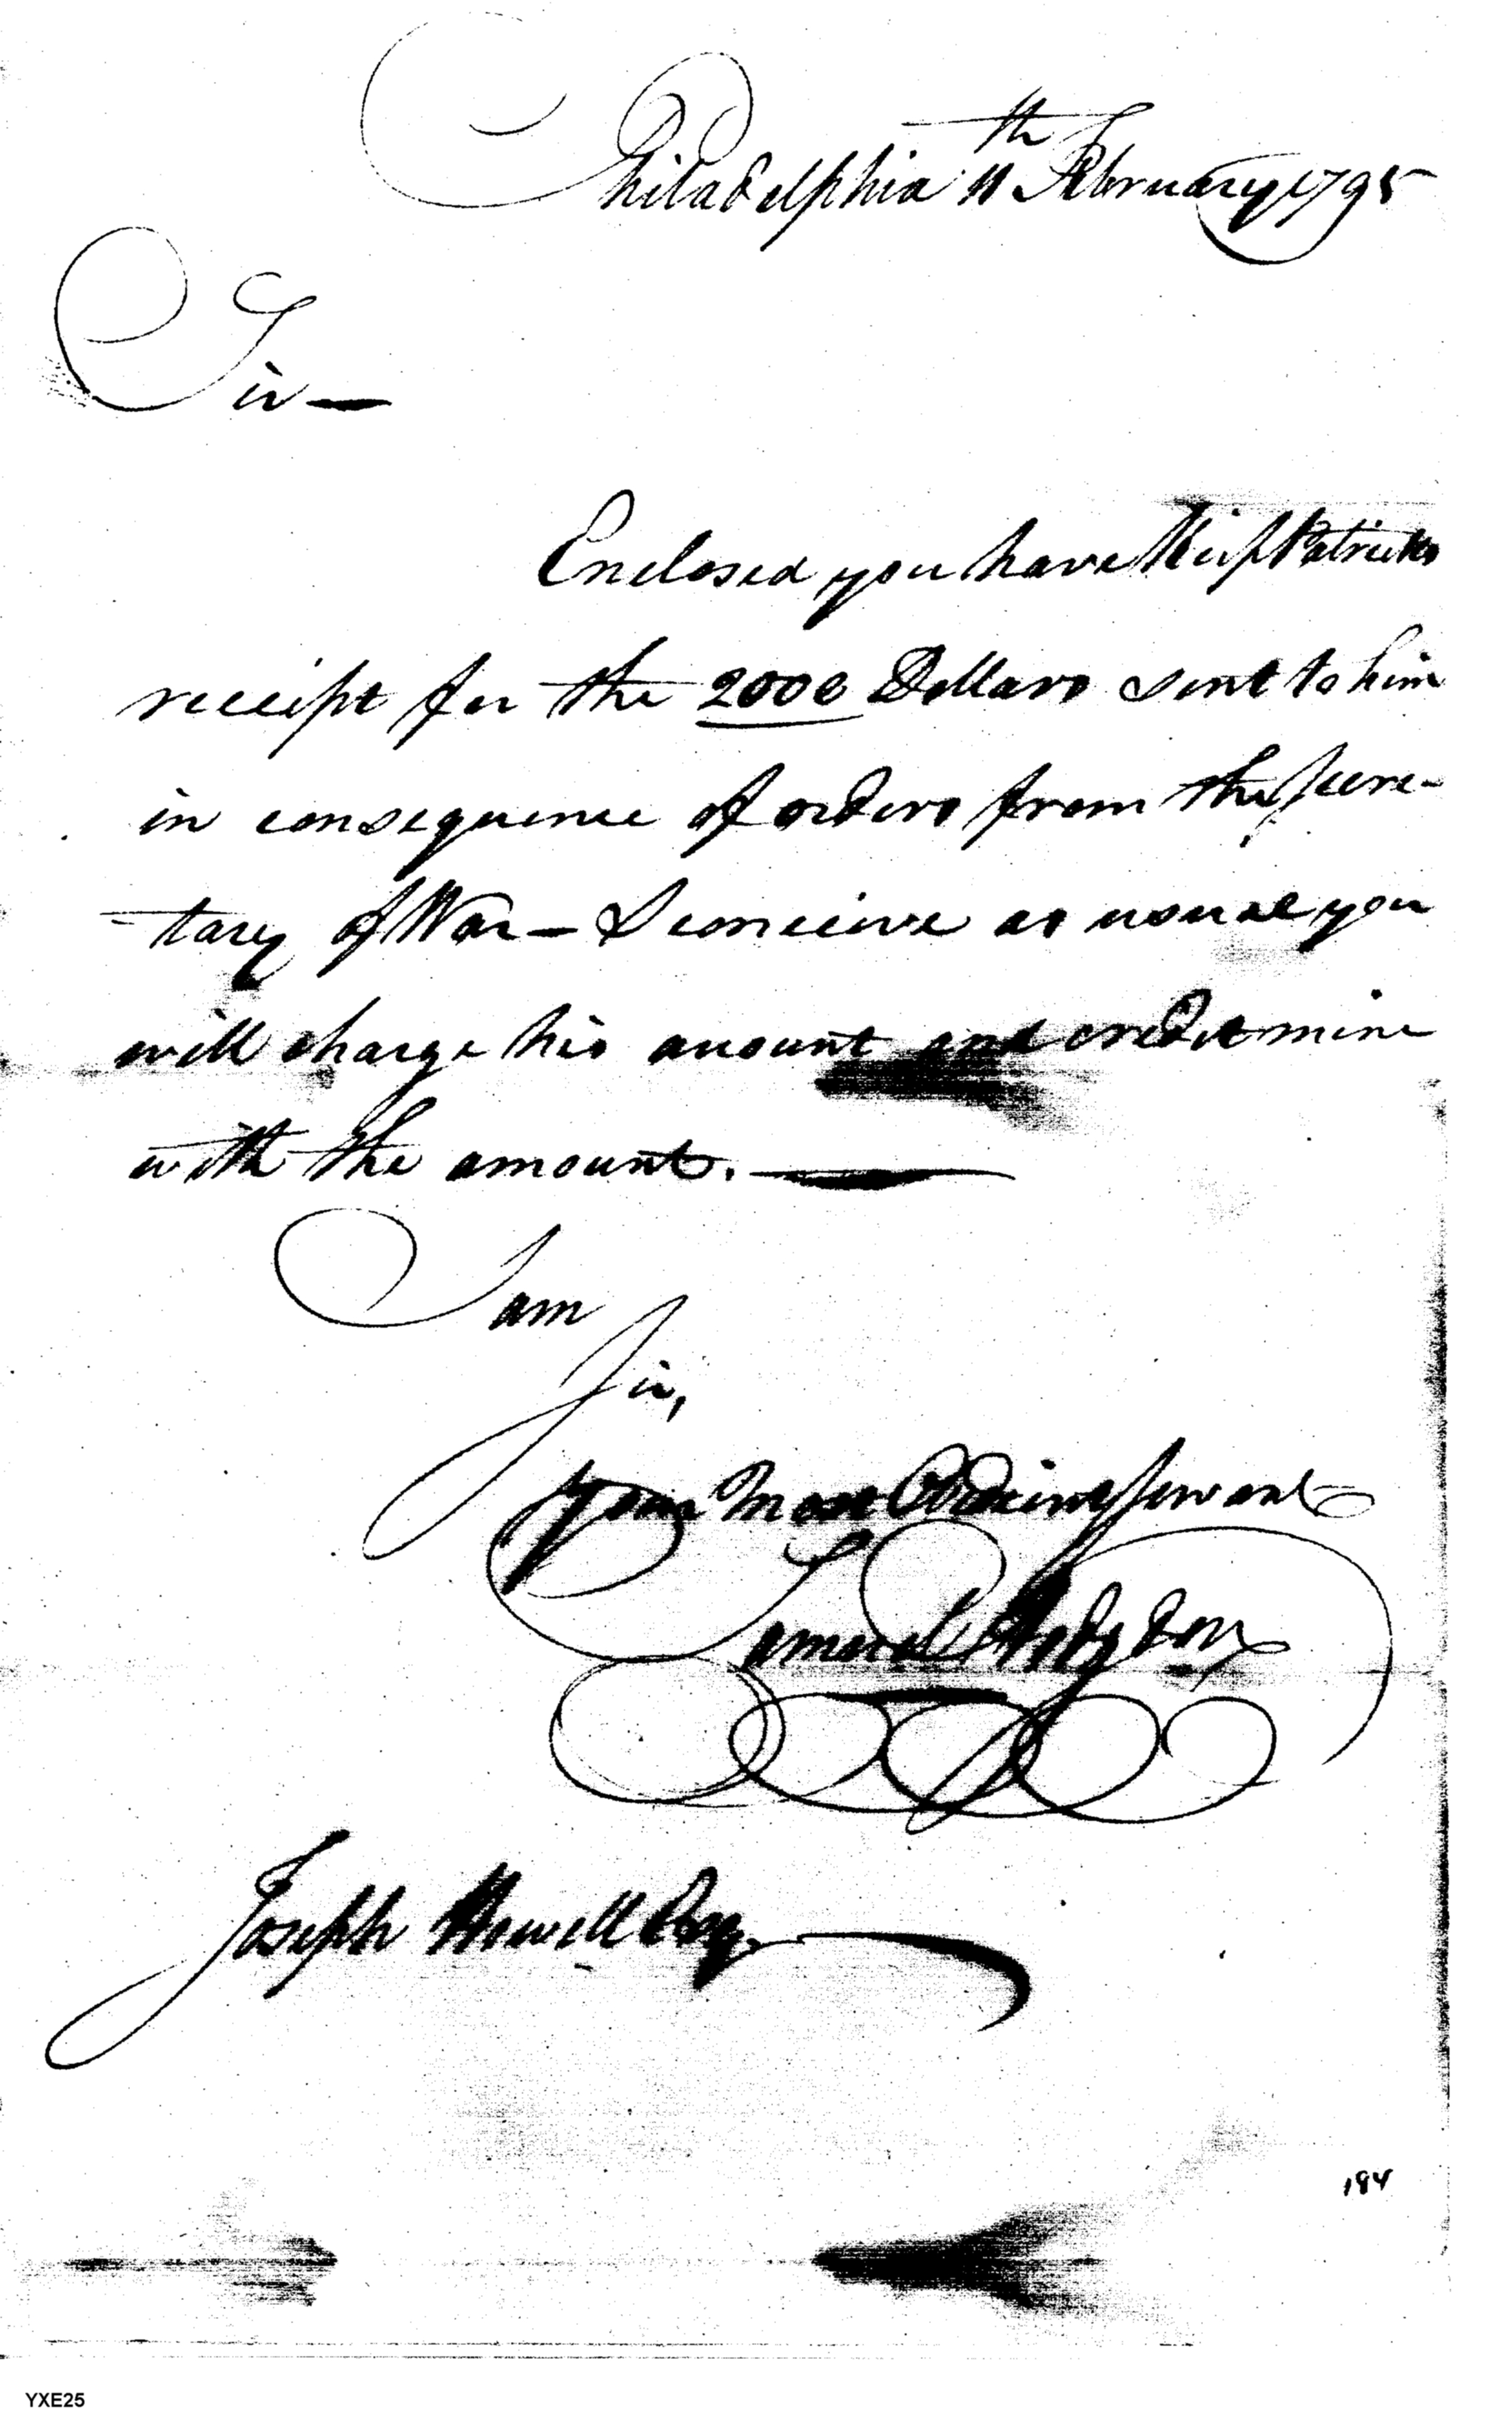 Philadelphia 11th February 1795
Sir —
Enclosed you have Kirk Patricks
receipt for the 2000 Dollars sent to him
in consequence of orders from the Secre-
-tary of War — I conceive as usual you
will charge his account and credit mine
with the amount. —
I am
Sir,
your Most Obedient Servant
Samuel Hodgdon
Joseph Howell Esq.
184
YXE25